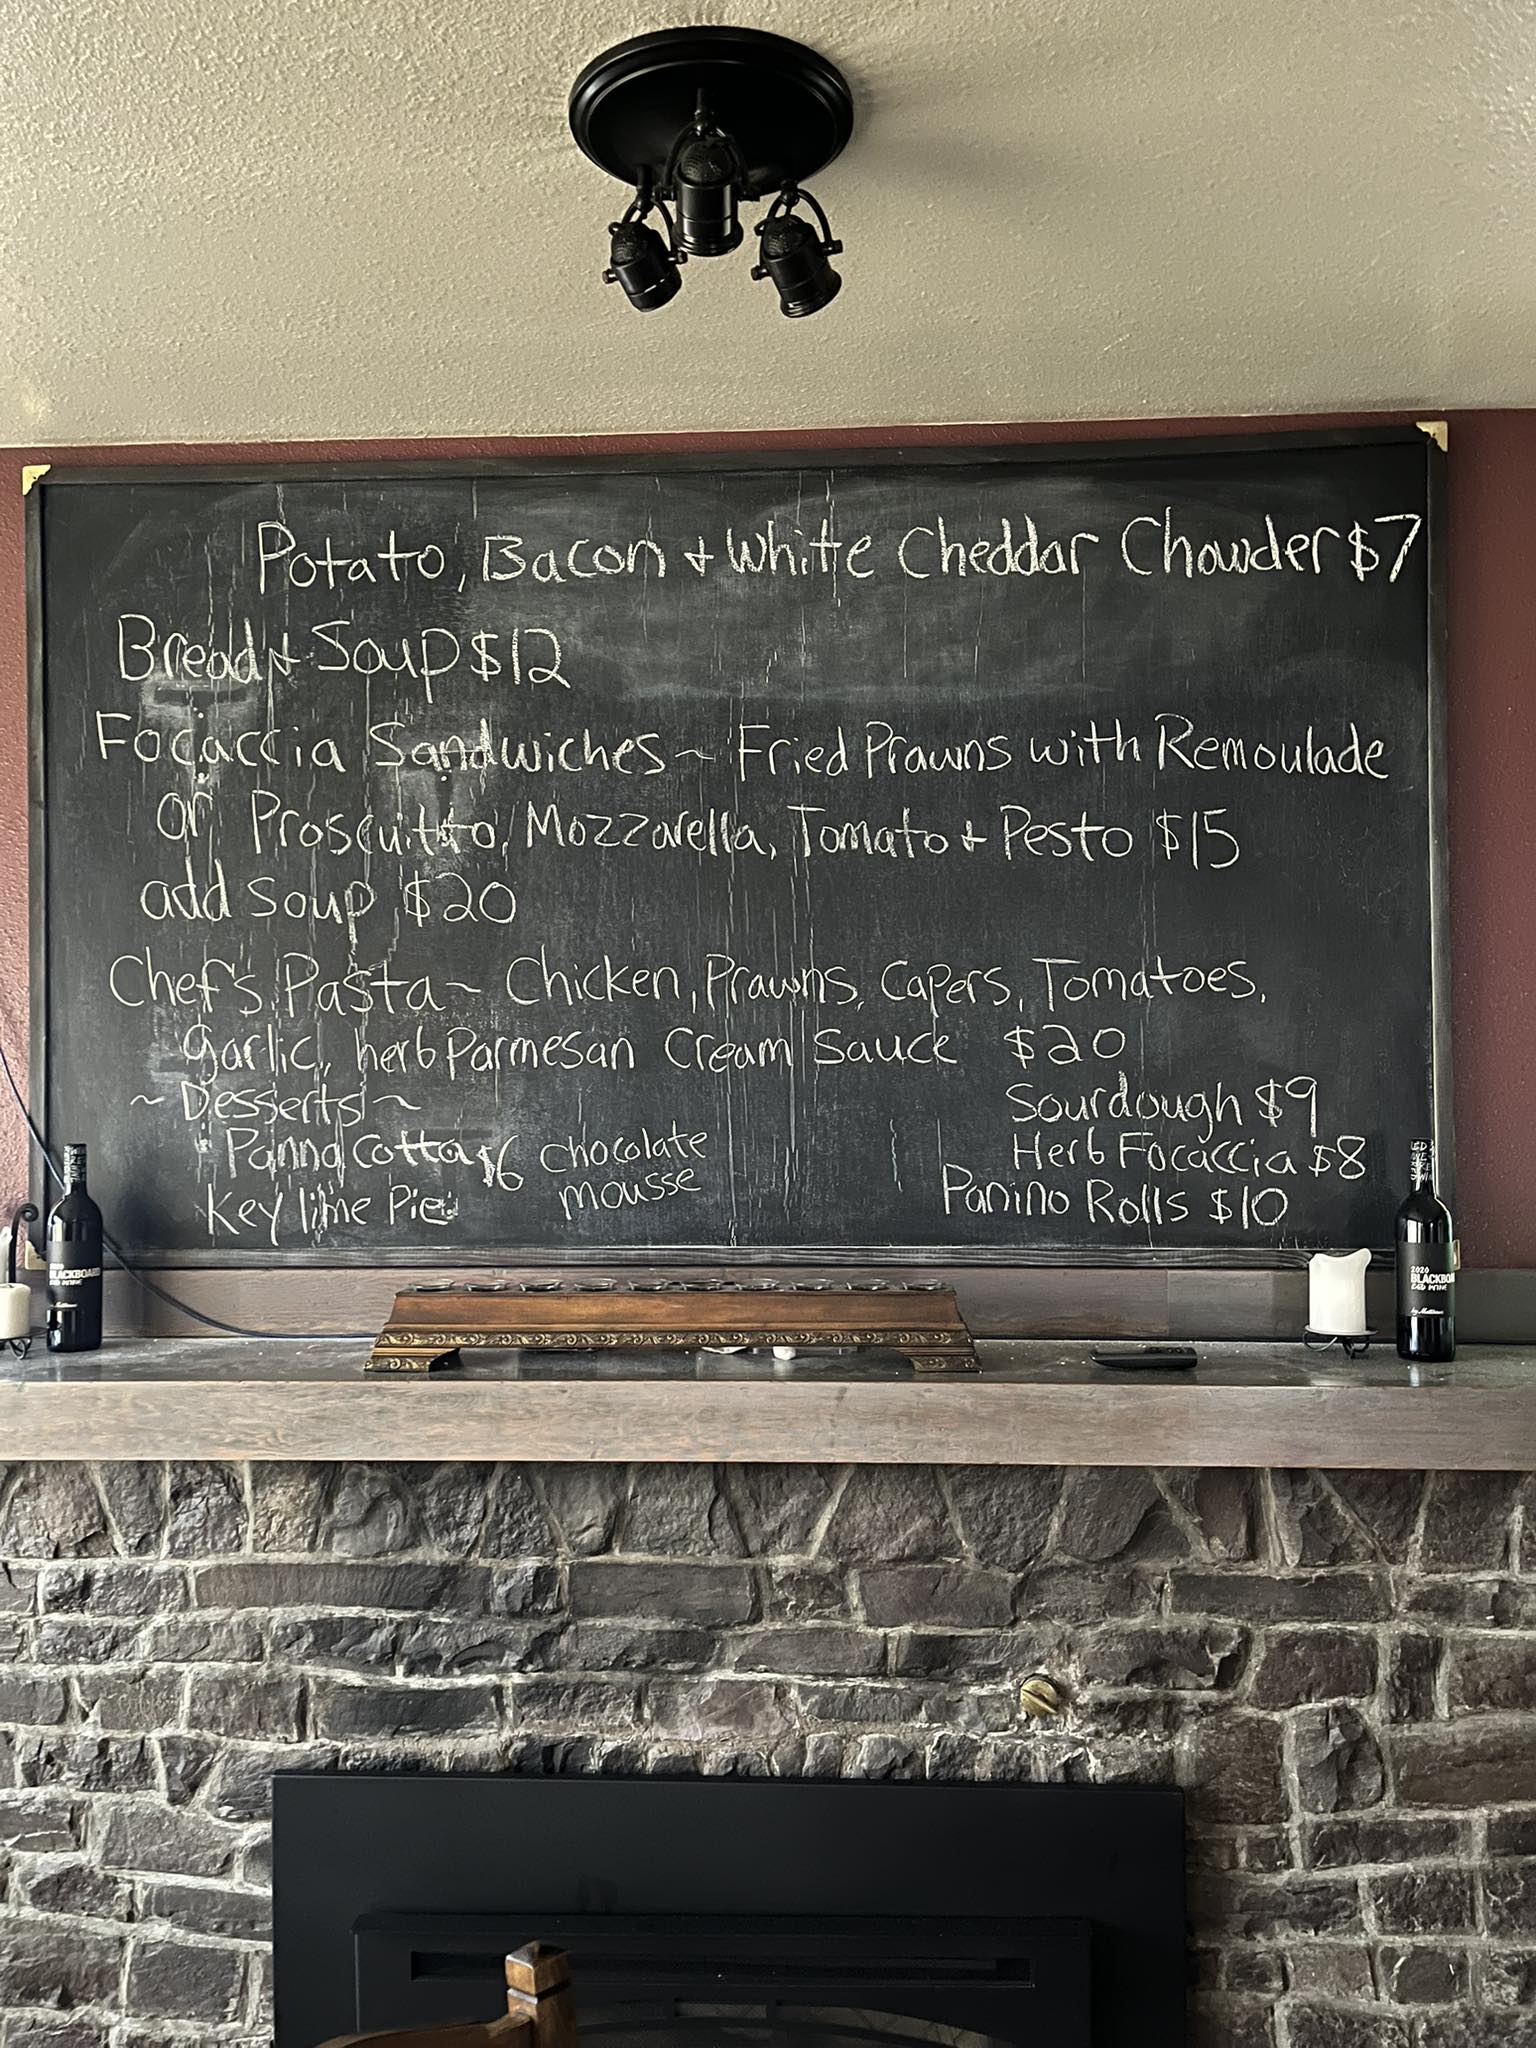 Potato, Bacon + White Cheddar Chowder $7
Bread + Soup $12
Focaccia Sandwiches ~ Fried Prawns with Remoulade
or Proscuitto, Mozzarella, Tomato + Pesto $15
add soup $20
Chef's Pasta ~ Chicken, Prawns, Capers, Tomatoes,
Garlic, herb Parmesan Cream Sauce $20
~ Desserts ~
Panna cotta $6 chocolate mousse
Key lime Pie
Sourdough $9
Herb Focaccia $8
Panino Rolls $10
2020
BLACKBOARD
RED WINE
2020
BLACKBOA
RED WINE